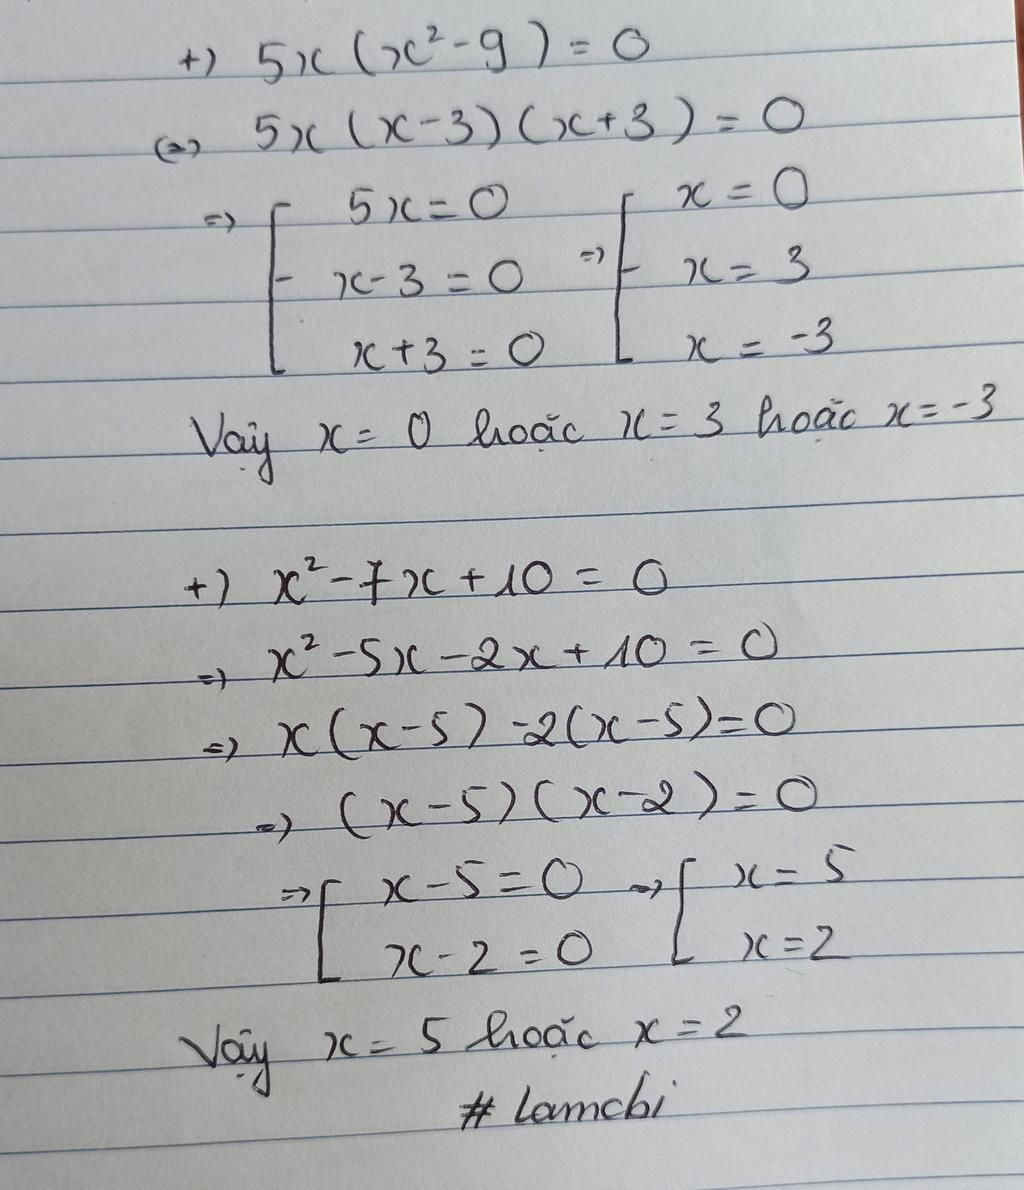 +) 5x (x² - 9) = 0
(=) 5x (x - 3) (x + 3) = 0
=) [ 5x = 0 =) [ x = 0
x - 3 = 0 x = 3
x + 3 = 0 x = -3
Vậy x = 0 hoặc x = 3 hoặc x = -3
+) x² - 7x + 10 = 0
=) x² - 5x - 2x + 10 = 0
=) x (x - 5) - 2(x - 5) = 0
=) (x - 5) (x - 2) = 0
=) [ x - 5 = 0 =) [ x = 5
x - 2 = 0 x = 2
Vậy x = 5 hoặc x = 2
# lamchi